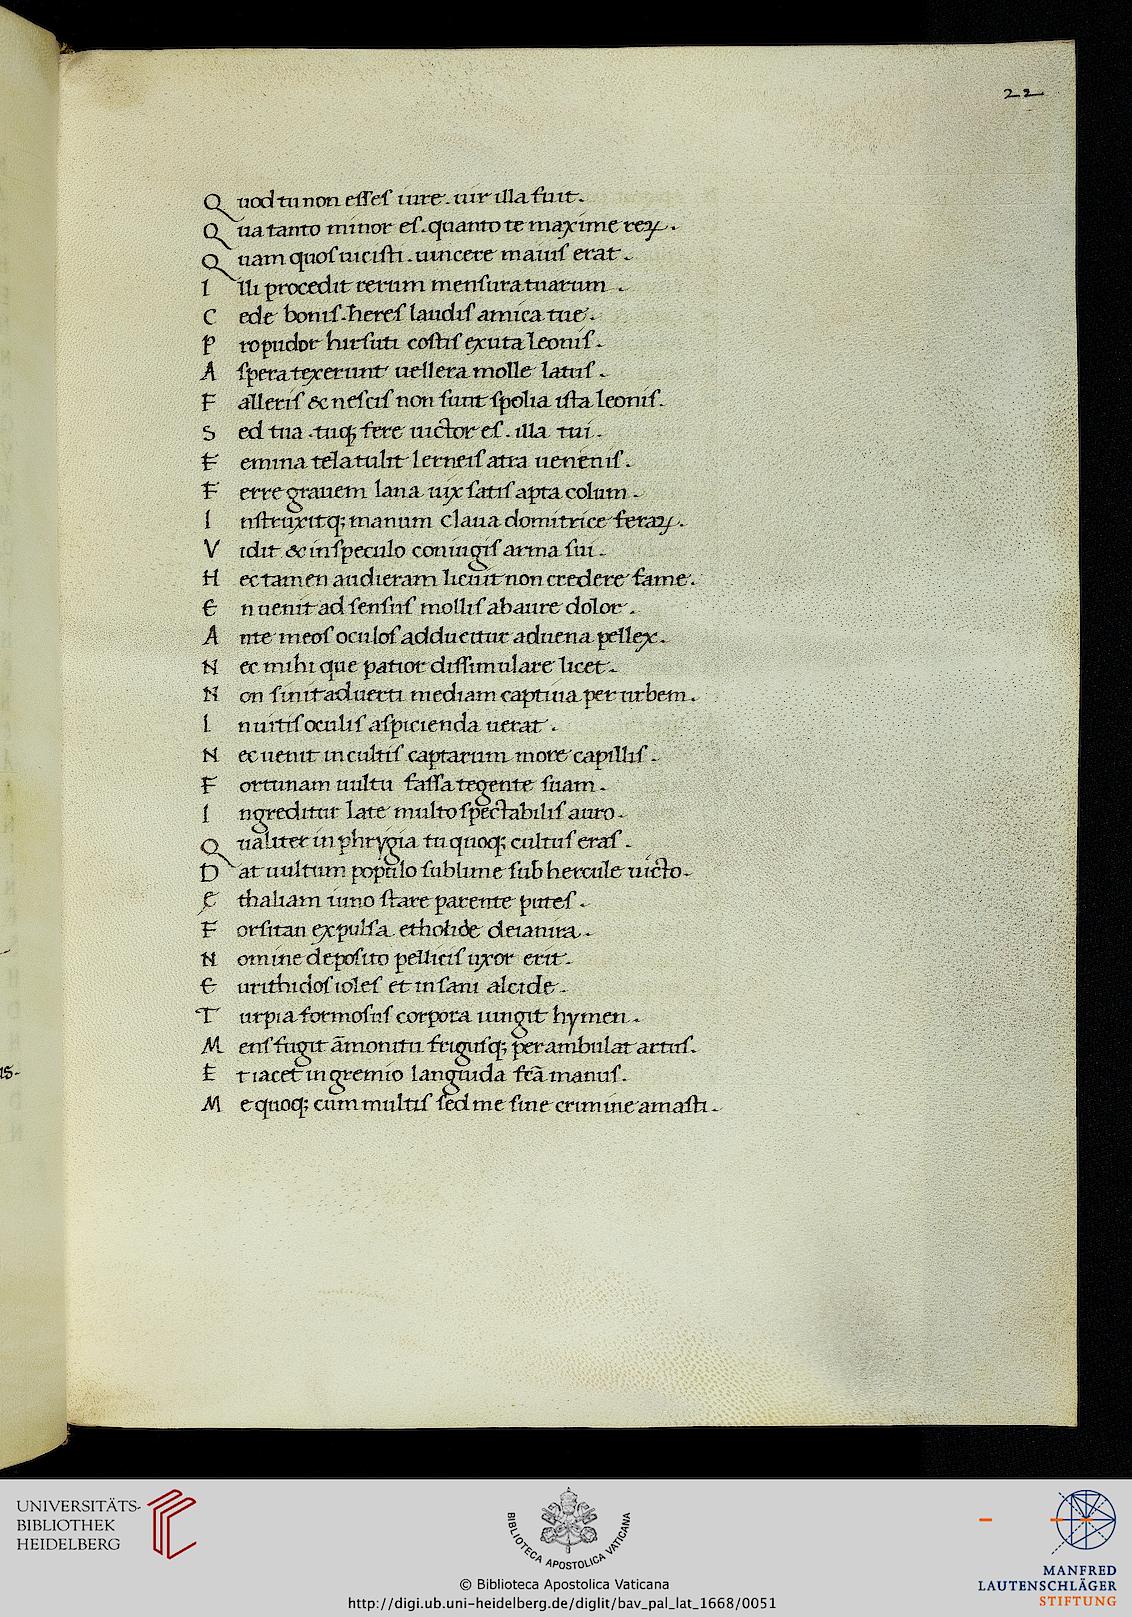 22
Quod tu non esses iure. uir illa fuit.
Qua tanto minor es. quanto te maxime reꝝ.
Quam quos uicisti. uincere maius erat.
Illi procedit rerum mensura tuarum.
Cede bonis. heres laudis amica tue.
Pro pudor hirsuti costis exuta leonis.
Aspera texerunt uellera molle latus.
Falleris & nescis non sunt spolia ista leonis.
Sed tua. tuq; fere uictor es. illa tui.
Femina tela tulit lerneis atra uenenis.
Ferre grauem lana uix satis apta colum.
Instruxitq; manum claua domitrice feraꝝ.
Vidit & in speculo coniugis arma sui.
Hec tamen audieram licuit non credere fame.
En uenit ad sensus mollis ab aure dolor.
Ante meos oculos adducitur aduena pellex.
Nec mihi que patior dissimulare licet.
Non sinit aduerti mediam captiua per urbem.
Inuitis oculis aspicienda uerat.
Nec uenit incultis captarum more capillis.
Fortunam uultu fassa tegente suam.
Ingreditur late multo spectabilis auro.
Qualiter in phrygia tu quoq; cultus eras.
Dat uultum populo sublime sub hercule uicto.
Ethaliam iuno stare parente putes.
Forsitan expulsa etholide deianira.
Nomine deposito pellicis uxor erit.
Eurithidos ioles et insani alcide.
Turpia formosus corpora iungit hymen.
Mens fugit āmonitu frigusq; perambulat artus.
Et iacet in gremio languida frā manus.
Me quoq; cum multis sed me sine crimine amasti.
UNIVERSITÄTS-
BIBLIOTHEK
HEIDELBERG
BIBLIOTECA APOSTOLICA VATICANA
MANFRED
LAUTENSCHLÄGER
STIFTUNG
© Biblioteca Apostolica Vaticana
http://digi.ub.uni-heidelberg.de/diglit/bav_pal_lat_1668/0051